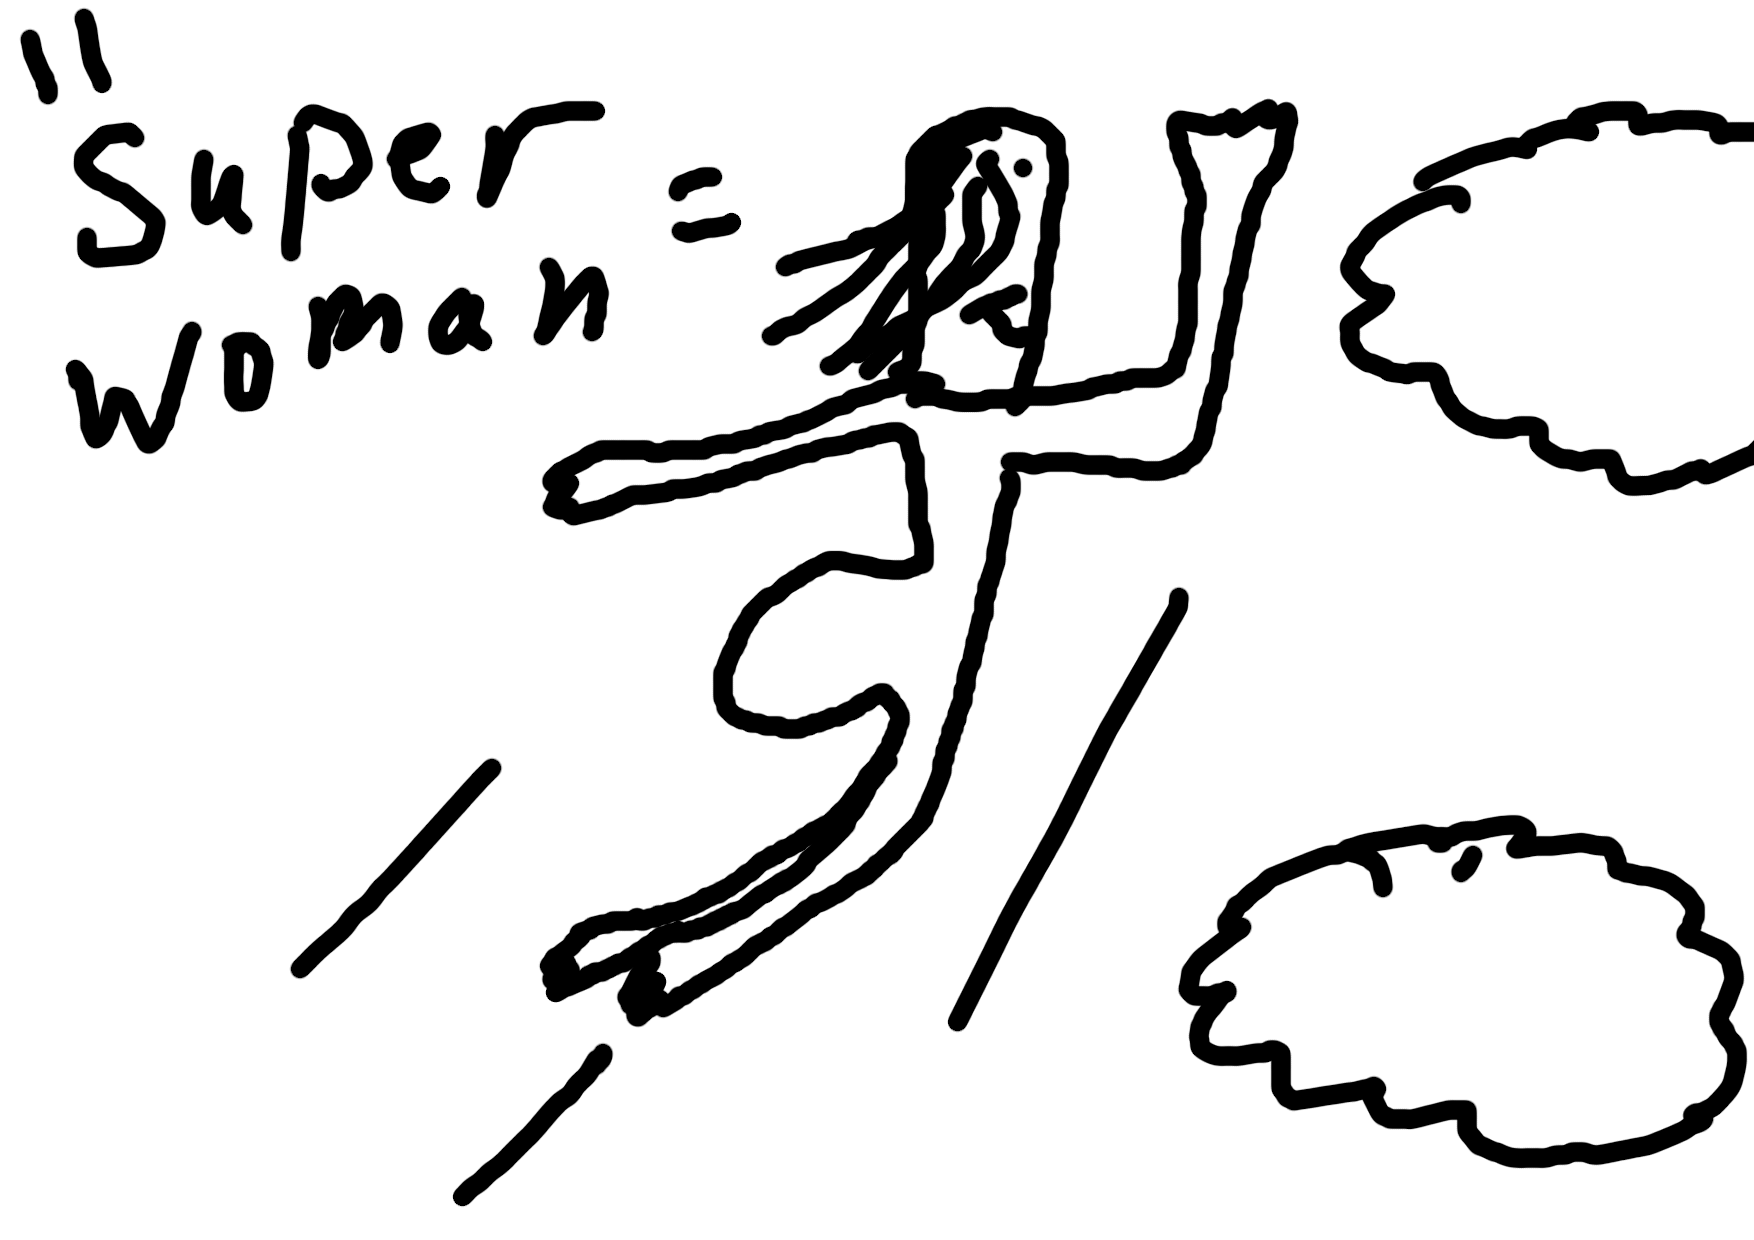 "Super
woman =